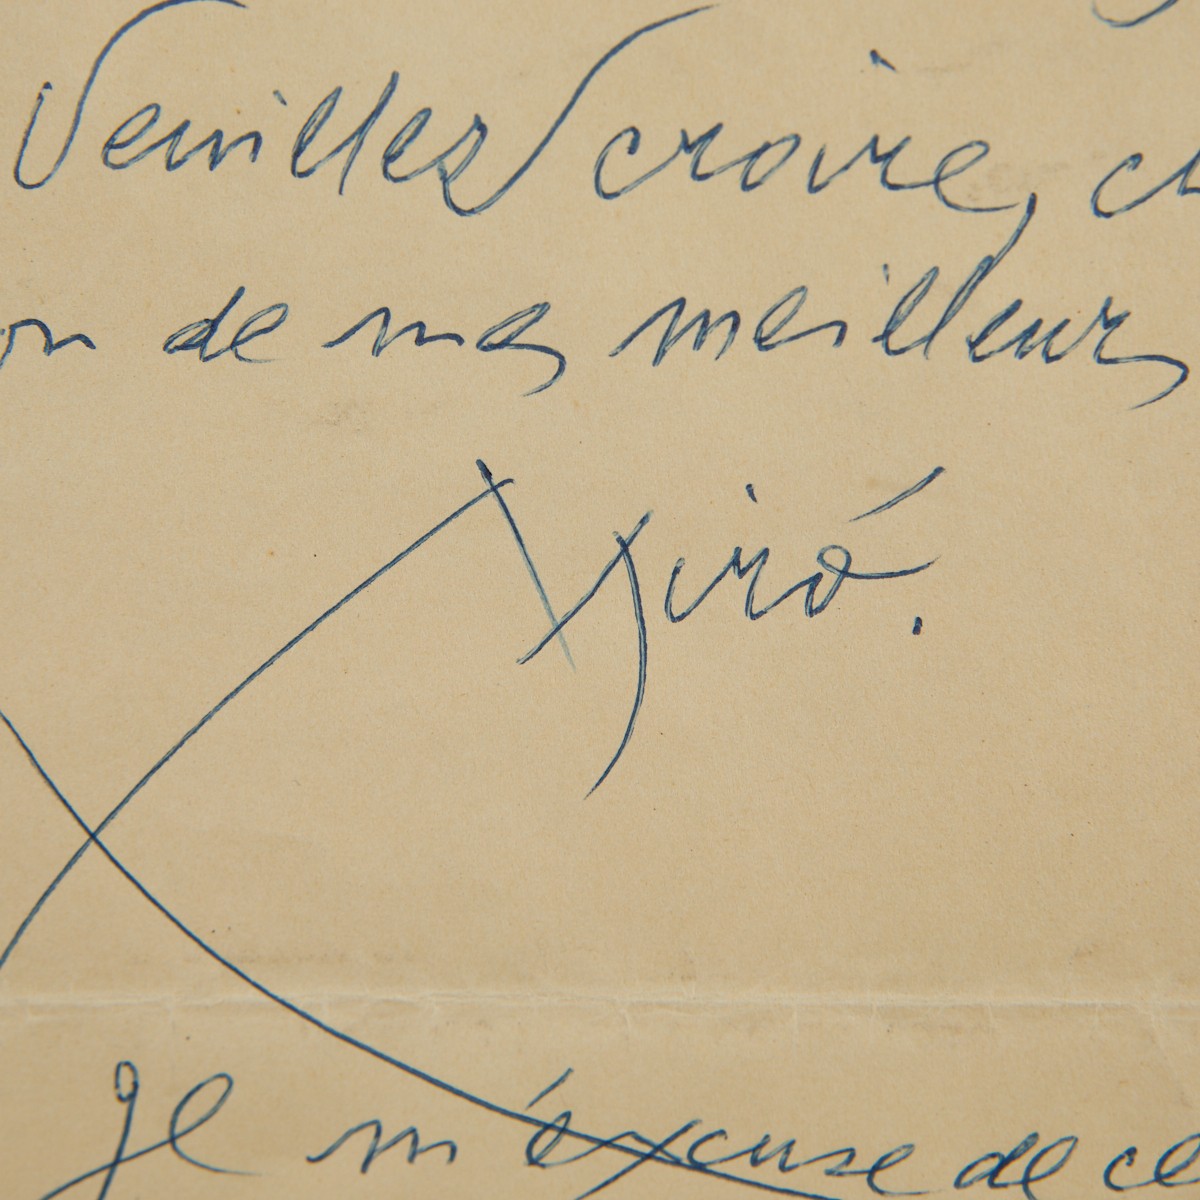 Veuillez croire, ch
on de mes meilleurs
Miró.
Je m'excuse de ce